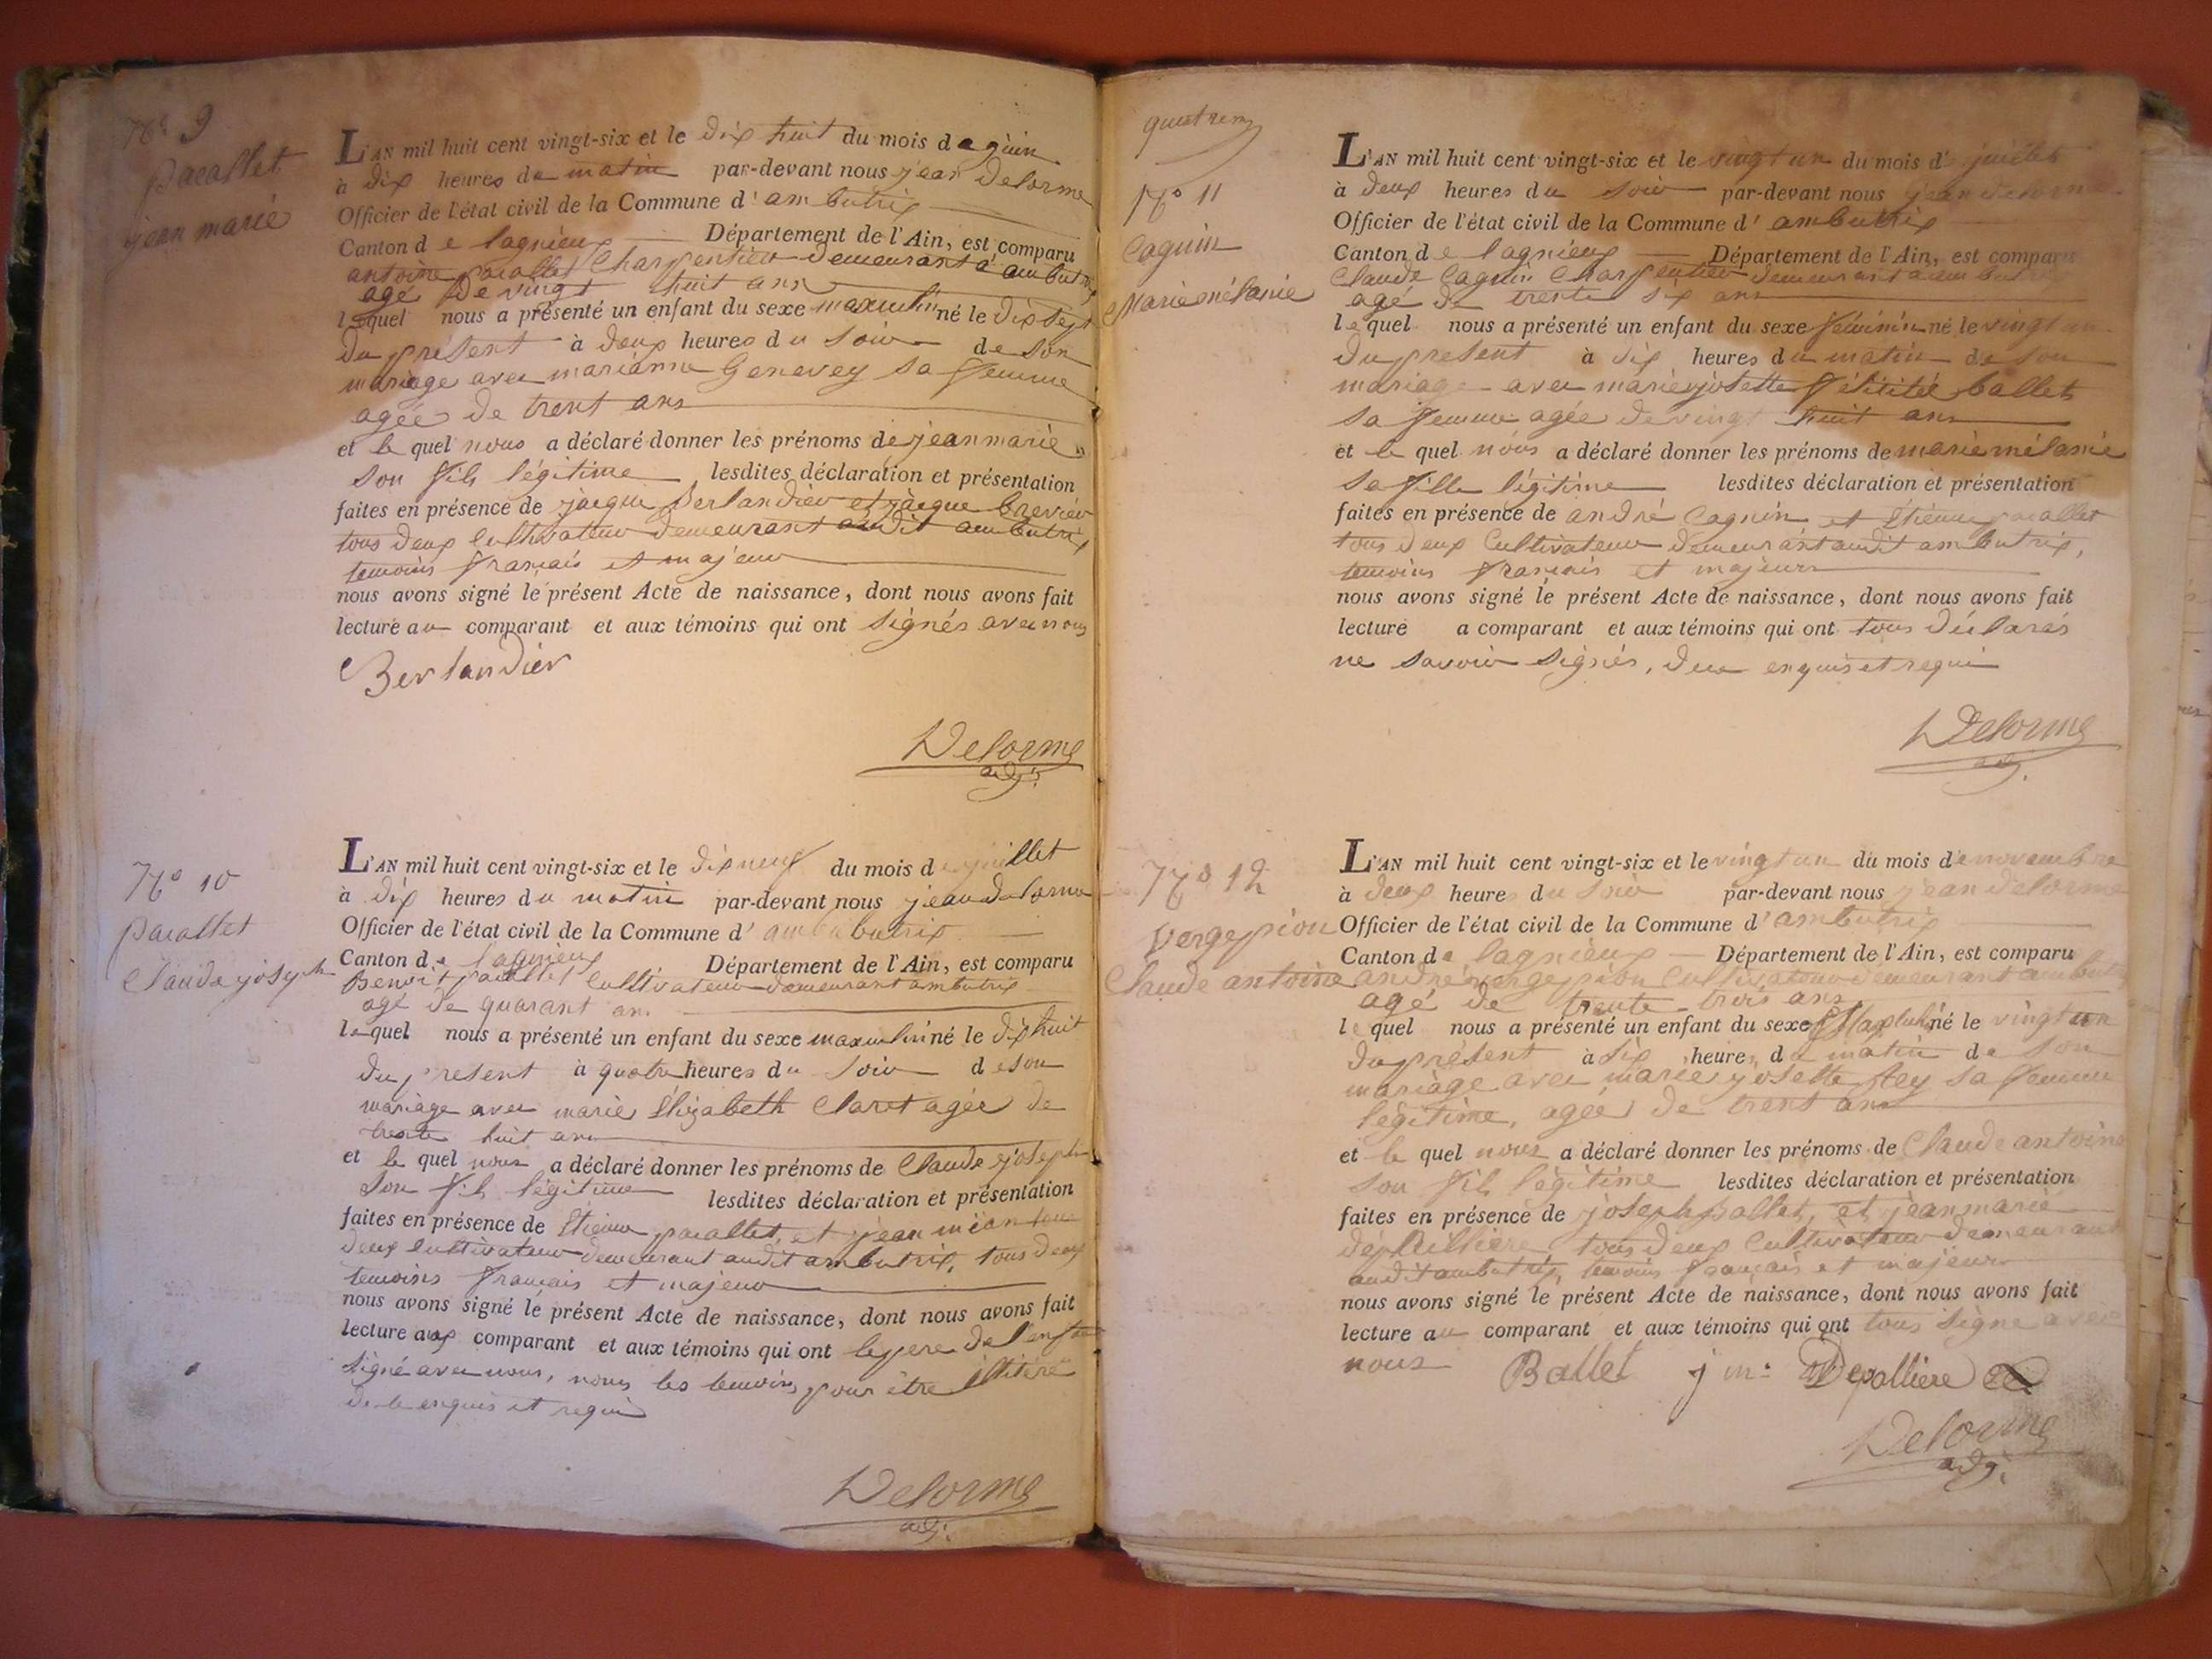 N° 9
pacallet
jean marie
L'AN mil huit cent vingt-six et le dix huit du mois de juin
à dix heures du matin par-devant nous jean Delorme
Officier de l'état civil de la Commune d'ambutrix
Canton de lagnieux Département de l'Ain, est comparu
antoine pacallet Charpentier demeurant à ambutrix
agé de vingt huit ans
lequel nous a présenté un enfant du sexe masculin né le dix sept
du présent à deux heures du soir de son
mariage avec marianne Genevey sa femme
agée de trent ans
et le quel nous a déclaré donner les prénoms de jean marie
son fils légitime lesdites déclaration et présentation
faites en présence de jacque Berlandier et jacque
tous deux cultivateur demeurant audit ambutrix
temoins français et majeur
nous avons signé le présent Acte de naissance, dont nous avons fait
lecture au comparant et aux témoins qui ont signés avec nous
Berlandier
Delorme
adj.
N° 10
pacallet
Claude joseph
L'AN mil huit cent vingt-six et le dix neuf du mois de juillet
à dix heures du matin par-devant nous jean delorme
Officier de l'état civil de la Commune d'
Canton de lagnieux Département de l'Ain, est comparu
Benoit pacallet cultivateur demeurant ambutrix
agé de quarant ans
lequel nous a présenté un enfant du sexe masculin né le dix huit
du present à quatre heures du soir de son
mariage avec marie Elizabeth Claret agée de
trente huit ans
et le quel nous a déclaré donner les prénoms de Claude joseph
son fils légitime lesdites déclaration et présentation
faites en présence de Etienne pacallet, et jean
deux cultivateur demeurant audit ambutrix, tous deux
temoins français et majeur
nous avons signé le présent Acte de naissance, dont nous avons fait
lecture aux comparant et aux témoins qui ont le pere de l'enfant
signé avec nous, nons les temoins pour être illitéré
de le enquis et requi
Delorme
adj.
N° 11
Caguin
Marie mélanie
L'AN mil huit cent vingt-six et le vingt un du mois de juillet
à deux heures du soir par-devant nous jean delorme
Officier de l'état civil de la Commune d'ambutrix
Canton de lagnieux Département de l'Ain, est comparu
Claude Caguin Charpentier demeurant à ambutrix
agé de trente six ans
lequel nous a présenté un enfant du sexe féminin né le vingt un
du present à dix heures du matin de son
mariage avec marie josette félicité ballet
sa femme agée de vingt huit ans
et le quel nous a déclaré donner les prénoms de marie mélanie
sa fille légitime lesdites déclaration et présentation
faites en présence de andré Caguin et Etienne pacallet
tous deux Cultivateur demeurant audit ambutrix,
temoins français et majeurs
nous avons signé le présent Acte de naissance, dont nous avons fait
lecture a comparant et aux témoins qui ont tous déclarés
ne savoir signés, de ce enquis et requi
Delorme
adj.
N° 12
Vergepiou
Claude antoine
L'AN mil huit cent vingt-six et le vingt un du mois de novembre
à deux heures du soir par-devant nous jean delorme
Officier de l'état civil de la Commune d'ambutrix
Canton de lagnieux Département de l'Ain, est comparu
andré vergepiou Cultivateur demeurant ambutrix
agé de trente trois ans
lequel nous a présenté un enfant du sexe Masculin né le vingt un
du présent à six heures du matin de son
mariage avec marie josette Rey sa femme
légitime, agée de trent ans
et le quel nous a déclaré donner les prénoms de Claude antoine
son fils légitime lesdites déclaration et présentation
faites en présence de joseph Ballet, et jean marie
tous deux Cultivateur demeurant
audit ambutrix, temoins français et majeur
nous avons signé le présent Acte de naissance, dont nous avons fait
lecture au comparant et aux témoins qui ont tous signé avec
nous Ballet j m: Depolliere
Delorme
adj.